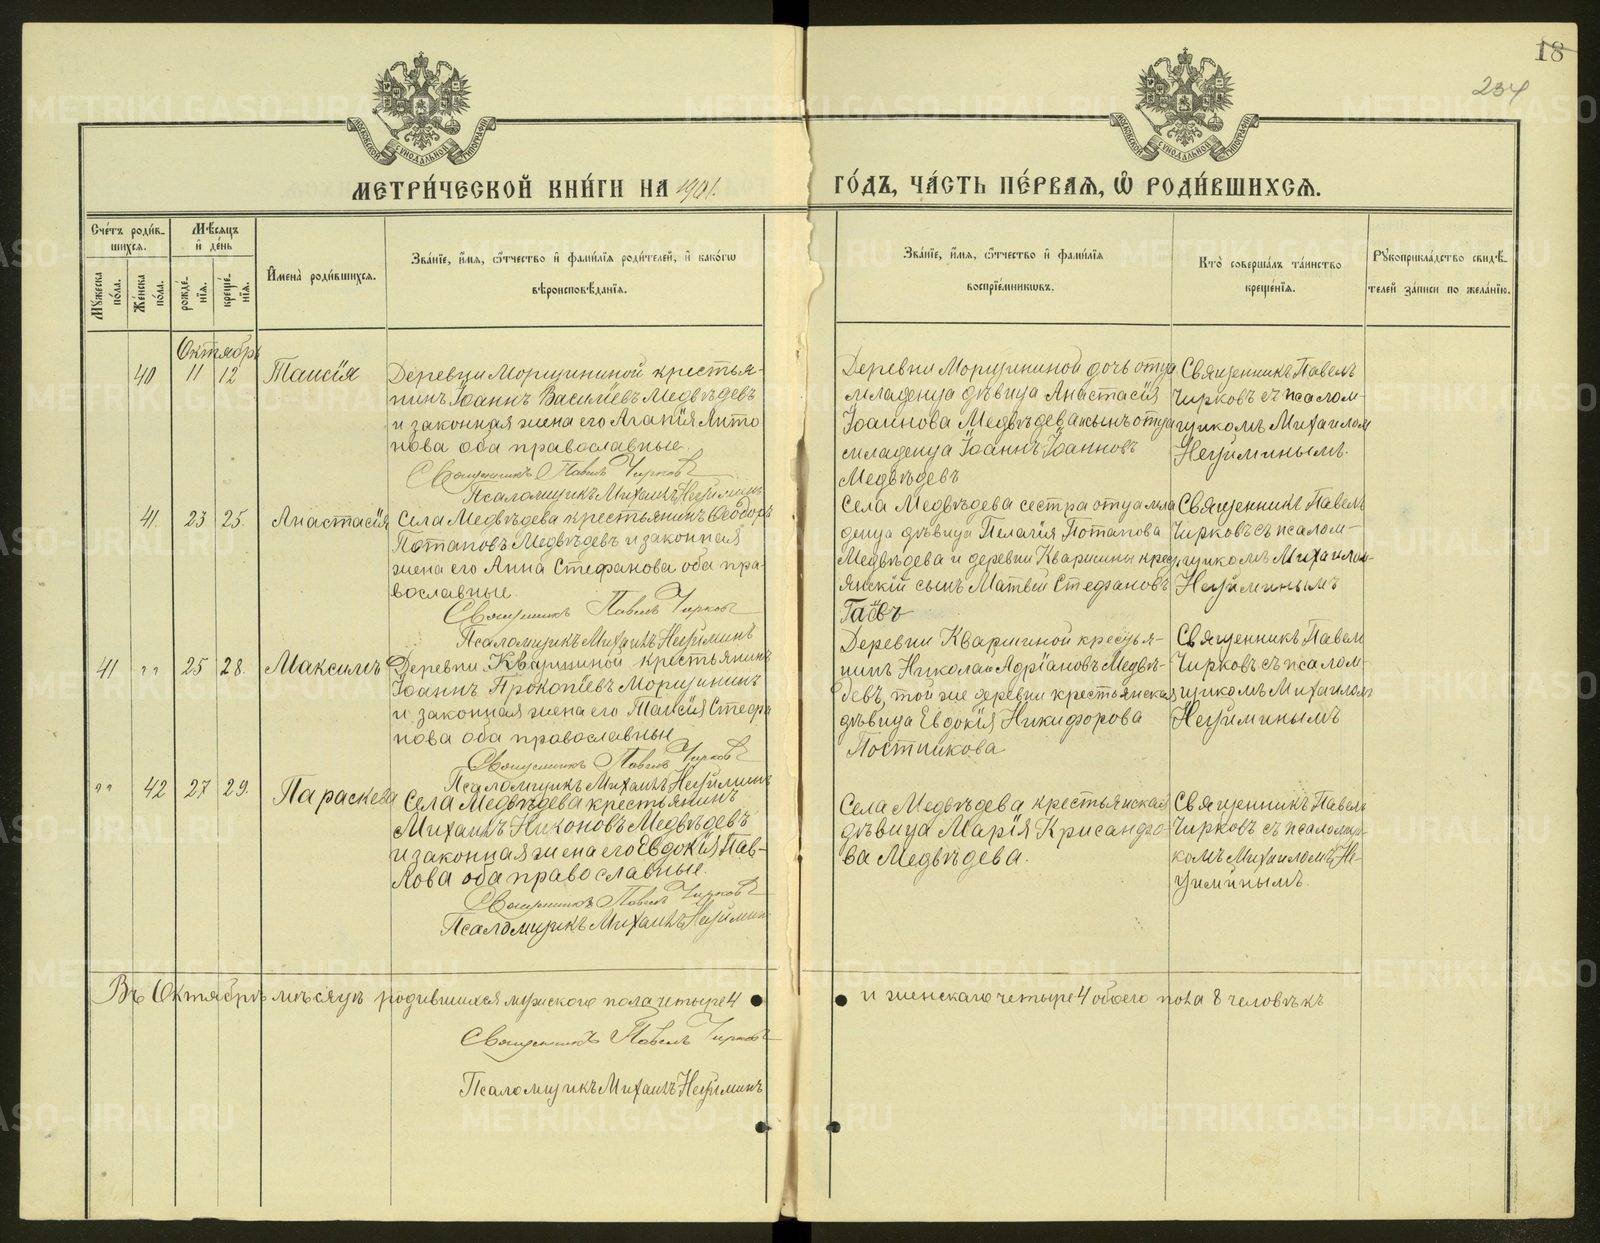 18
234
МОСКОВСКОЙ СУНОДАЛЬНОЙ ТИПОГРАФІИ
МОСКОВСКОЙ СУНОДАЛЬНОЙ ТИПОГРАФІИ
МЕТРИ́ЧЕСКОЙ КНИ́ГИ НА 1901.
ГО́ДЪ, ЧА́СТЬ ПЕ́РВАѦ, Ѡ҆ РОДИ́ВШИХСѦ.
Сче́тъ роди́в-
шихсѧ.
Мꙋжеска по́ла.
Же́нска по́ла.
Мѣ́сѧцъ
и҆ де́нь
рожде́-
нїѧ.
креще́-
нїѧ.
И҆мена̀ роди́вшихсѧ.
Зва́нїе, и҆́мѧ, ѻ҆́тчество и҆ фами́лїѧ роди́телей, и҆ како́гѡ
вѣроисповѣ́данїѧ.
Зва́нїе, и҆́мѧ, ѻ҆́тчество и҆ фами́лїѧ
воспрїе́мникѡвъ.
Кто̀ соверша́лъ та́инство
креще́нїѧ.
Рꙋкоприкла́дство свидѣ́-
телей за́писи по жела́нїю.
Октябрь
40 11 12 Таисія
Деревни Морщининой крестья-
нинъ Іоаннъ Василіевъ Медвѣдевъ
и законная жена его Агапія Анто
нова оба православные.
Священникъ Павелъ Чирковъ
Псаломщикъ Михаилъ Неуйминъ
Деревни Морщининой дочь отца
младенца дѣвица Анастасія
Іоаннова Медвѣдева и сынъ отца
младенца Іоаннъ Іоанновъ
Медвѣдевъ
Священникъ Павелъ
Чирковъ съ псалом-
щикомъ Михаиломъ
Неуйминымъ.
41. 23 25. Анастасія
Села Медвѣдева крестьянинъ Ѳеодоръ
Потаповъ Медвѣдевъ и законная
жена его Анна Стефанова оба пра-
вославные.
Священникъ Павелъ Чирковъ
Псаломщикъ Михаилъ Неуйминъ
Села Медвѣдева сестра отца мла
денца дѣвица Пелагія Потапова
Медвѣдева и деревни Квашнины крест
янскій сынъ Матвѣй Стефановъ
Гаёвъ
Священникъ Павелъ
Чирковъ съ псалом-
щикомъ Михаилом-
Неуйминымъ
41 " 25 28. Максимъ
Деревни Квашниной крестьянинъ
Іоаннъ Прокопіевъ Морщининъ
и законная жена его Таисія Стефа
нова оба православны
Священникъ Павелъ Чирковъ
Псаломщикъ Михаилъ Неуйминъ
Деревни Квашниной крестья-
нинъ Николай Адріановъ Медвѣ-
девъ, той же деревни крестьянская
дѣвица Евдокія Никифорова
Постникова
Священникъ Павелъ
Чирковъ съ псалом-
щикомъ Михаиломъ
Неуйминымъ
" 42 27 29. Параскева
Села Медвѣдева крестьянинъ
Михаилъ Никоновъ Медвѣдевъ
и законная жена его Евдокія Пав-
лова оба православные.
Священникъ Павелъ Чирковъ
Псаломщикъ Михаилъ Неуймин
Села Медвѣдева крестьянская
дѣвица Марія Крисанфо-
ва Медвѣдева.
Священникъ Павелъ
Чирковъ съ псаломщи-
комъ Михаиломъ Не-
уйминымъ.
Въ Октябрѣ мѣсяцѣ родившихся мужского пола четыре 4
и женскаго четыре 4 обоего пола 8 человѣкъ
Священникъ Павелъ Чирковъ
Псаломщикъ Михаилъ Неуйминъ
METRIKI.GASO-URAL.RU